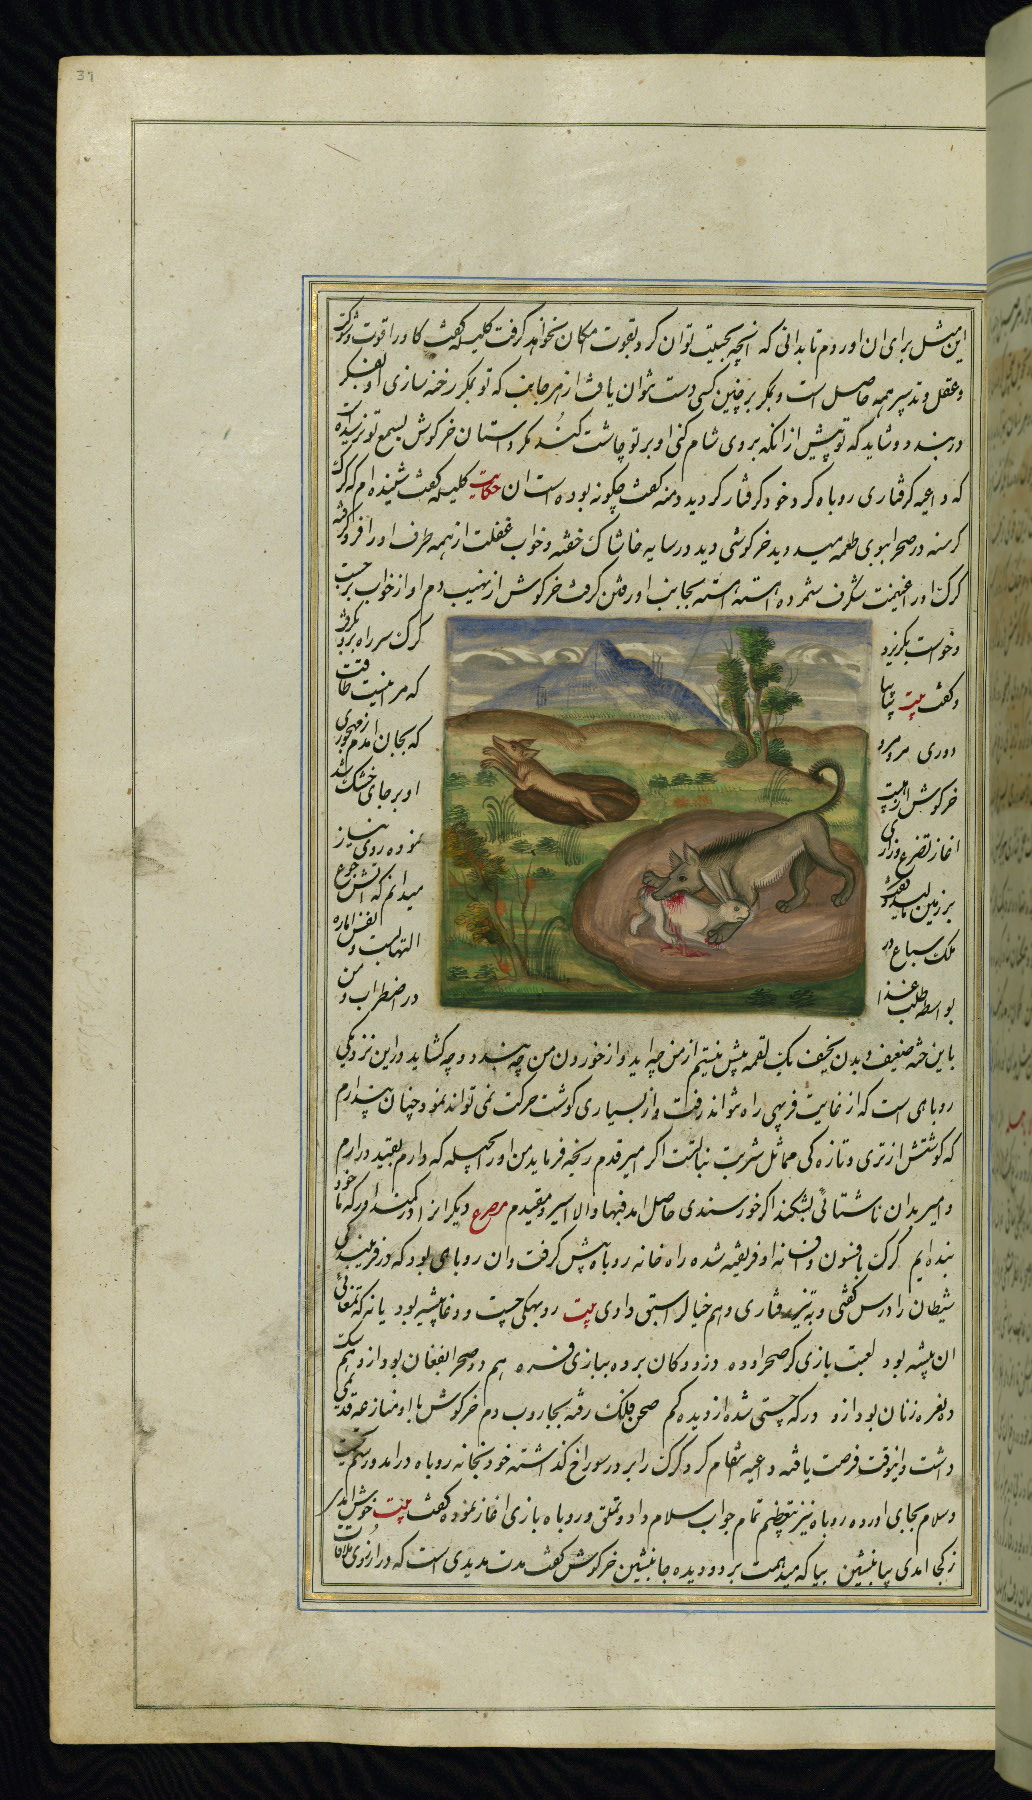 37
این مثل برای ان اوردم تا بدانی که انچه بحیلت توان کرد بقوت امکان نخواهد گرفت کلیله گفت کاو را قوت و شوکت
و عقل و تدبیر همه حاصل است و بمکر بر چنین کسی دست نتوان یافت از هر جانب که تو بمکر رخنه سازی او بفکر
در بندد و شاید که تو پیش از انکه بر وی شام کنی او بر تو چاشت کند مکر داستان خرکوش بسمع تو نرسیده است
که داعیه کرفتاری روباه کرد خود کرفتار کردید دمنه گفت چکونه بوده است ان حکایت کلیله گفت شنیده ام که کرکی
کرسنه در صحرا ببوی طعمه میدوید خرکوشی دید در سایه خاشاک خفته و خواب غفلت از همه طرف او را فرو کرفته
کرک او را غنیمت شکرف شمرده اهسته اهسته بجانب او رفتن کرفت خرکوش از نهیب دم او از خواب برجست
و خواست بکریزد کرک سر راه برو بکرفت
و گفت بیت بیا بیا که مرا نیست طاقت
دوری مرو مرو که بجان امدم از مهجوری
خرکوش از هیبت او بر جای خشک شد
اغاز تضرع و زاری نموده روی نیاز
بر زمین مالید و گفت میدانم که اتش جوع
ملک سباع در التهابست و نفس اماره
بواسطه طلب غذا در اضطراب و من
با این جثه ضعیف و بدن نحیف یک لقمه پیش نیستم از من چه اید و از خوردن من چه بندد و چه کشاید در این نزدیکی
روباهی است که از غایت فربهی راه نتواند رفت و از بسیاری کوشت حرکت نمی تواند نمود چنان پندارم
که کوشتش از تری و تازه کی مماثل شربت نباتست اکر امیر قدم رنجه فرماید من او را بحیله که دارم بقید درارم
و امیر بدان ناشتائی بشکند اکر خورسندی حاصل امد فبها والا اسیر و مقیدم مصرع دیکرانرا در کمند اور که ما خود
بنده ایم کرک بافسون و افسانه او فریفته شده راه خانه روباه پیش کرفت و ان روباهی بود که در فریبندگی
شیطان را درس گفتی و به نیرنک سازی وهم خیال را سبق دادی بیت روبهکی چست و دغاپیشه بود
ان پیشه بود لعبت بازی کر صحرا و ده دزد دکان برده ببازی فره هم دد صحرا بفغان بود ازو هم سک
ده نعره زنان بود ازو در که چستی شده از دیده کم صحن فلک رفته بجاروب دم خرکوش با او منازعه قدیمی
داشت و اینوقت فرصت یافته داعیه انتقام کرد کرک را بر در سوراخ گذاشته خود بخانه روباه درامد و رسم تحیت
و سلام بجای اورده روباه نیز بتعظیم تمام جواب سلام داد و تملق و روباه بازی اغاز نموده گفت بیت خوش امدی
ز کجا امدی بیا بنشین بیا که میدهمت بر دو دیده جا بنشین خرکوش گفت مدت مدیدی است که در ارزوی ملاقات